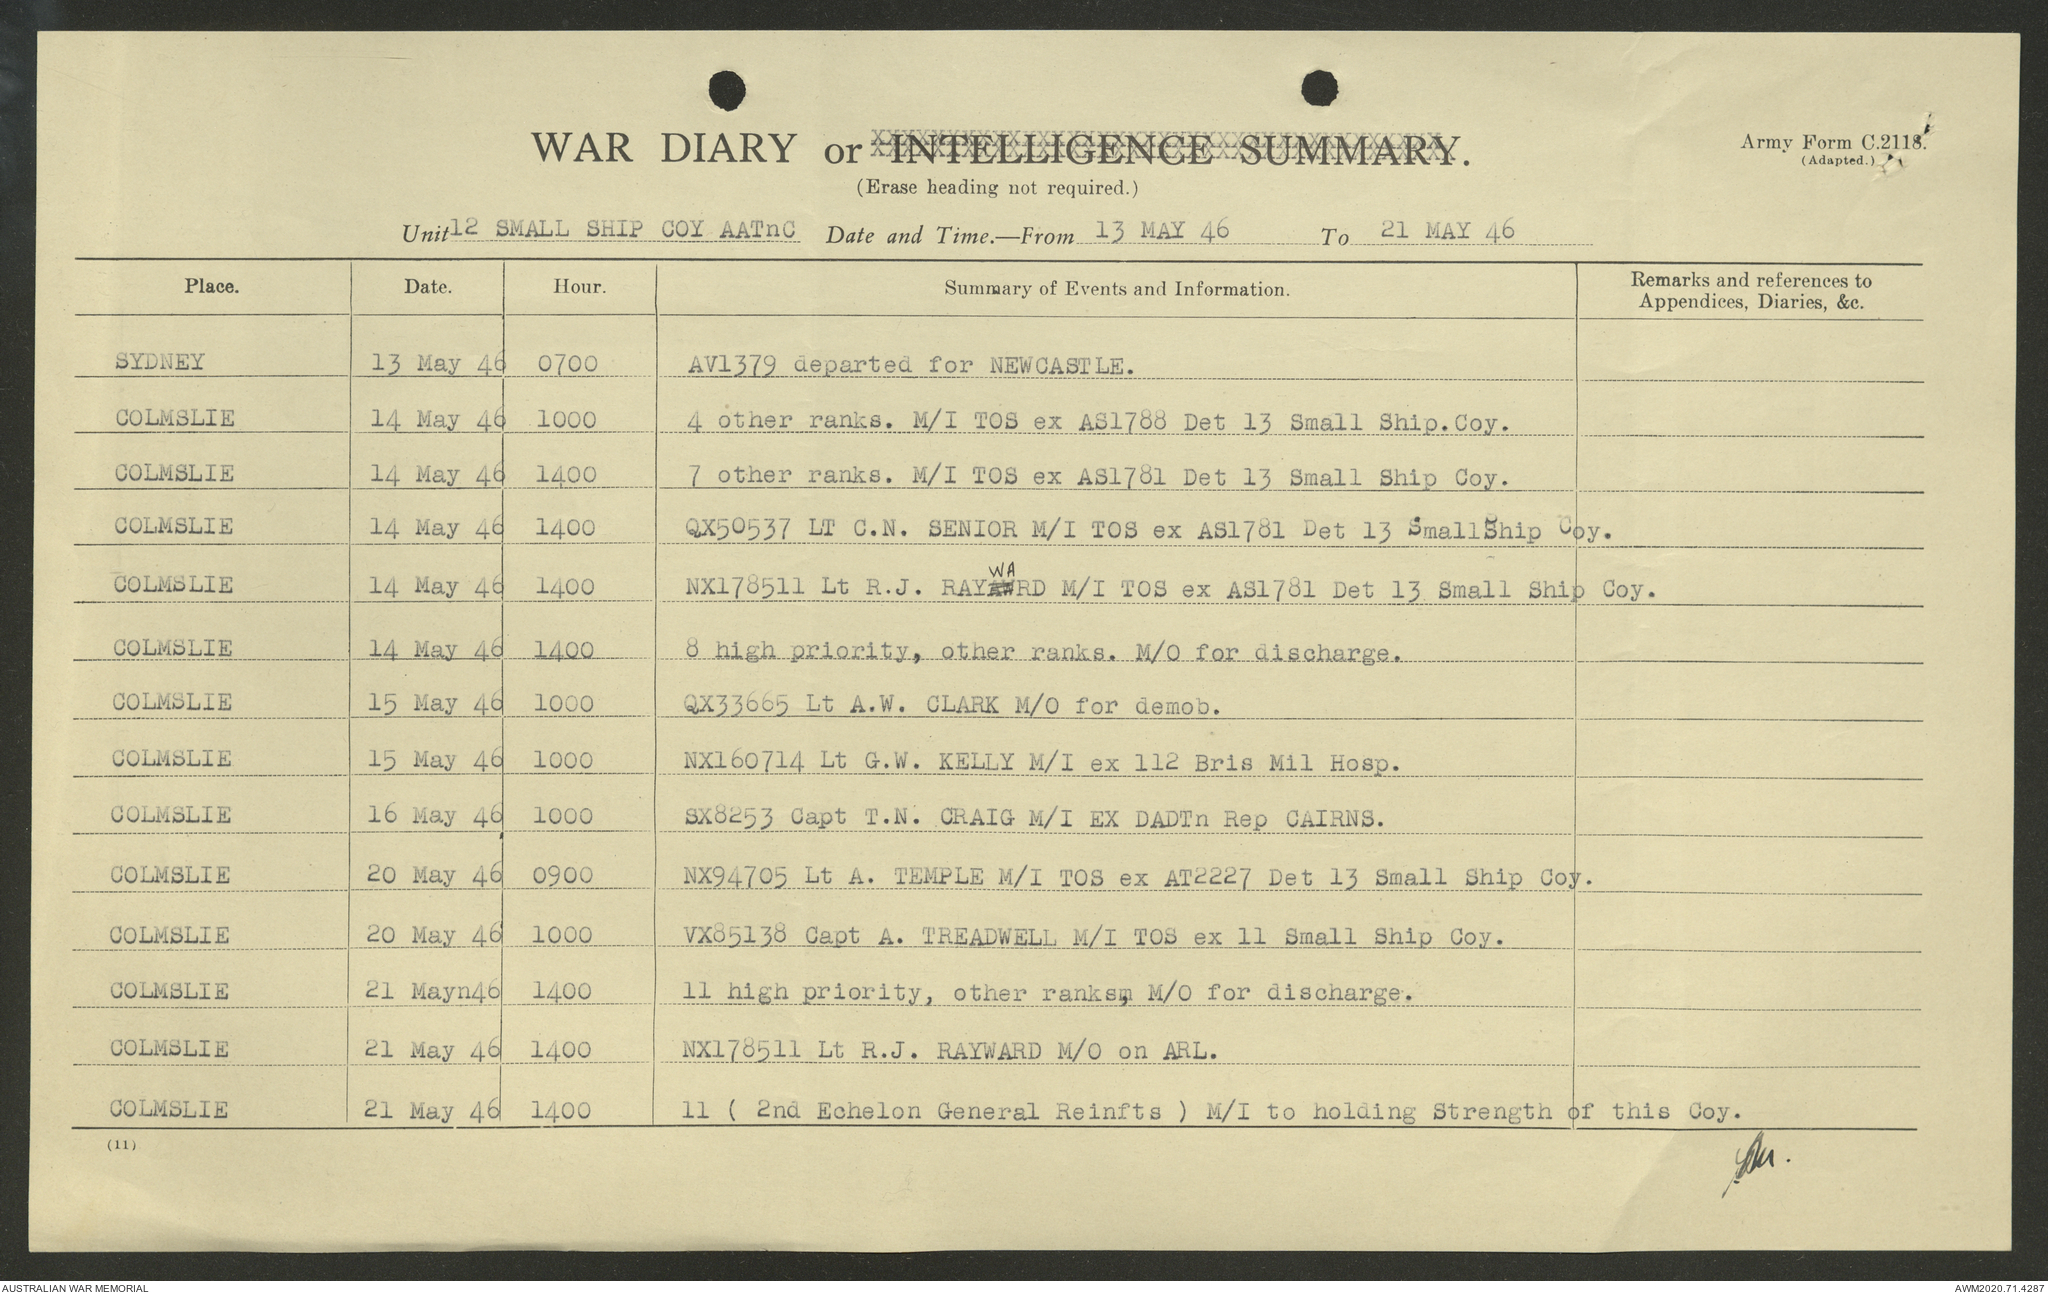 WAR DIARY or INTELLIGENCE SUMMARY.
Army Form C.2118.
(Adapted.)
(Erase heading not required.)
Unit 12 SMALL SHIP COY AATnC Date and Time.—From 13 MAY 46 To 21 MAY 46
Place. Date. Hour. Summary of Events and Information. Remarks and references to
Appendices, Diaries, &c.
SYDNEY 13 May 46 0700 AV1379 departed for NEWCASTLE.
COLMSLIE 14 May 46 1000 4 other ranks. M/I TOS ex AS1788 Det 13 Small Ship.Coy.
COLMSLIE 14 May 46 1400 7 other ranks. M/I TOS ex AS1781 Det 13 Small Ship Coy.
COLMSLIE 14 May 46 1400 QX50537 LT C.N. SENIOR M/I TOS ex AS1781 Det 13 SmallShip Coy.
COLMSLIE 14 May 46 1400 NX178511 Lt R.J. RAYWARD M/I TOS ex AS1781 Det 13 Small Ship Coy.
COLMSLIE 14 May 46 1400 8 high priority, other ranks. M/O for discharge.
COLMSLIE 15 May 46 1000 QX33665 Lt A.W. CLARK M/O for demob.
COLMSLIE 15 May 46 1000 NX160714 Lt G.W. KELLY M/I ex 112 Bris Mil Hosp.
COLMSLIE 16 May 46 1000 SX8253 Capt T.N. CRAIG M/I EX DADTn Rep CAIRNS.
COLMSLIE 20 May 46 0900 NX94705 Lt A. TEMPLE M/I TOS ex AT2227 Det 13 Small Ship Coy.
COLMSLIE 20 May 46 1000 VX85138 Capt A. TREADWELL M/I TOS ex 11 Small Ship Coy.
COLMSLIE 21 Mayn46 1400 11 high priority, other ranksm, M/O for discharge.
COLMSLIE 21 May 46 1400 NX178511 Lt R.J. RAYWARD M/O on ARL.
COLMSLIE 21 May 46 1400 11 ( 2nd Echelon General Reinfts ) M/I to holding Strength of this Coy.
(11)
AUSTRALIAN WAR MEMORIAL
AWM2020.71.4287